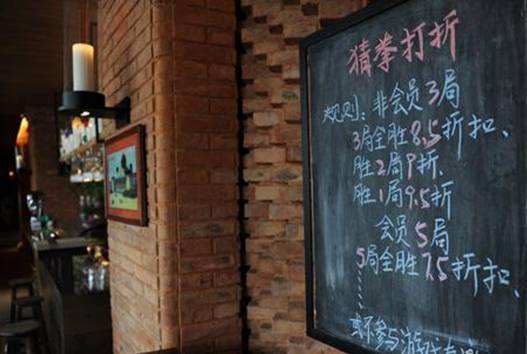 猜拳打折
规则：非会员3局
3局全胜8.5折扣、
胜2局9折、
胜1局9.5折
会员5局
5局全胜7.5折扣、
……
或不参与游戏